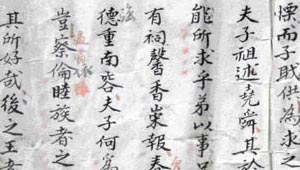 慄而子貺供為求之
夫子祖述堯舜其於
能所求乎弟以事
有祠馨香崇報春
德重南容夫子何為
豈察倫睦族者之
其所好哉後之王者